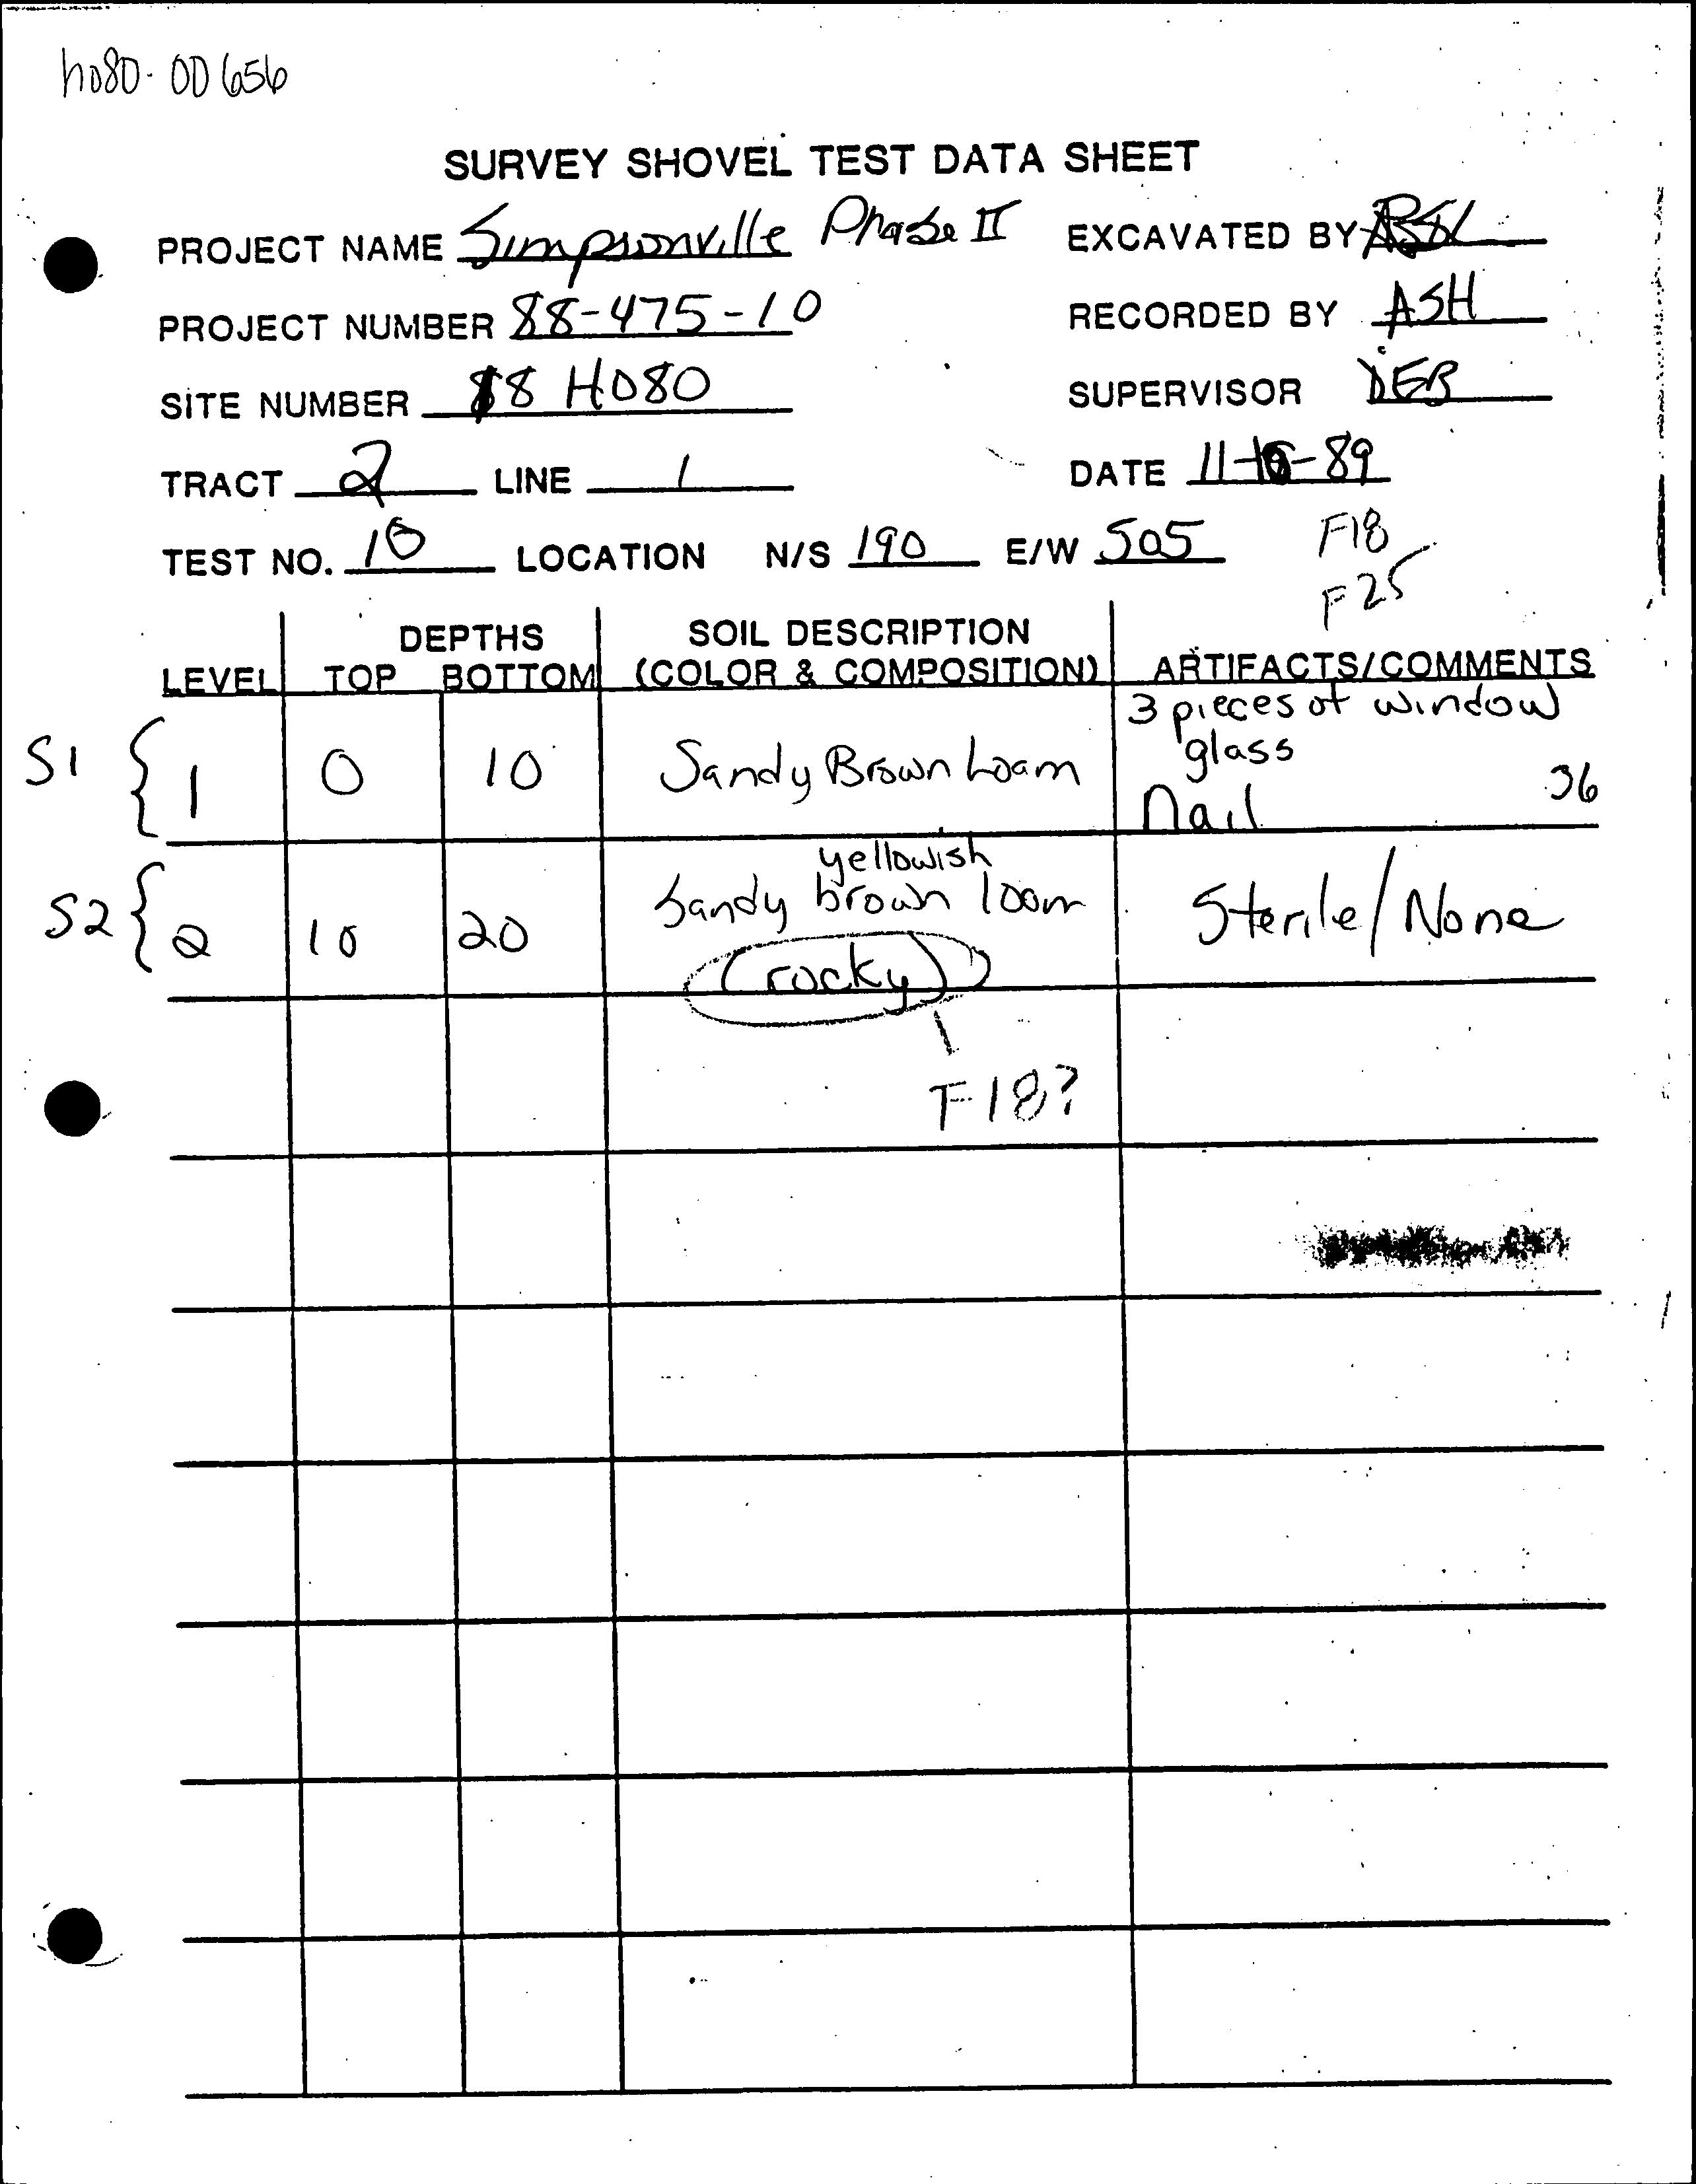 ho80-00656
SURVEY SHOVEL TEST DATA SHEET
PROJECT NAME Simpsonville Phase II EXCAVATED BY
PROJECT NUMBER 88-475-10 RECORDED BY ASH
SITE NUMBER 18 HO80 SUPERVISOR DEB
TRACT 2 LINE 1 DATE 11-16-89
TEST NO. 10 LOCATION N/S 190 E/W 505 F18
F25
DEPTHS SOIL DESCRIPTION
LEVEL TOP BOTTOM (COLOR & COMPOSITION) ARTIFACTS/COMMENTS
3 pieces of window
glass
S1 { 1 0 10 Sandy Brown Loam 36
Nail
yellowish
S2 { 2 10 20 Sandy brown loam Sterile/None
(rocky)
F18?